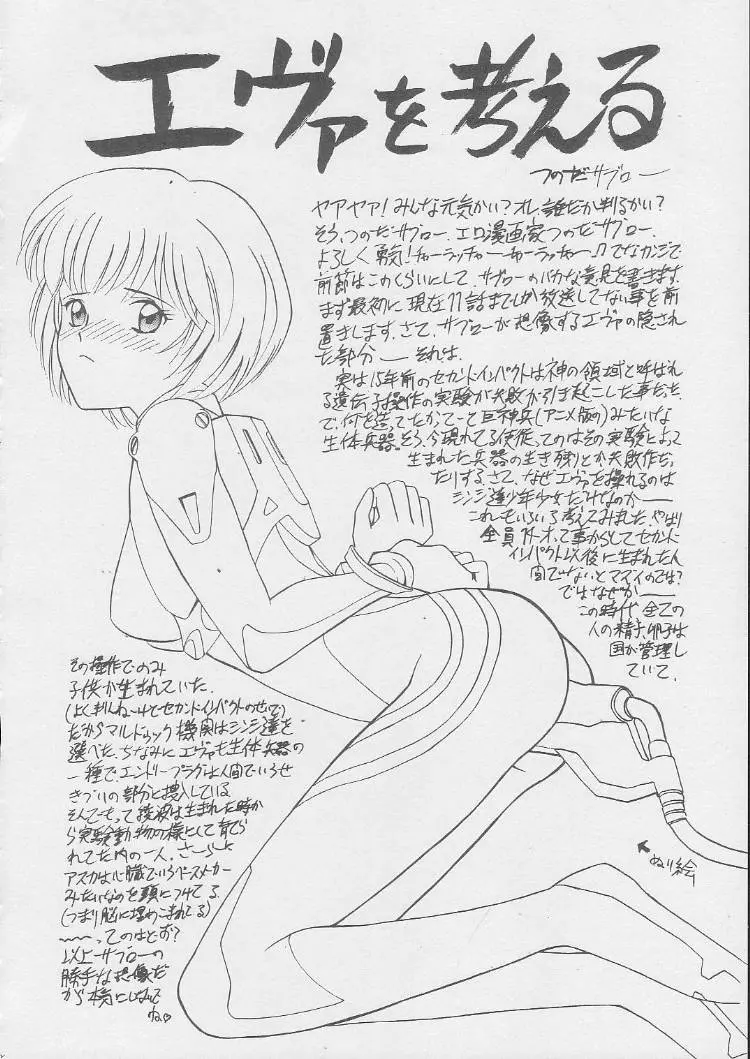 エヴァを考える
つのだサブロー
ヤアヤア!みんな元気かい?オレ、誰だか判るかい?
そう、つのだサブロー、エロ漫画家つのだサブロー、
よろしく勇気!ちゃーラッチャーちゃーラッチャー♪でなカンジで
前節はこのくらいにして、サブローのバカな意見を書きます。
まず最初に現在11話までしか放送してない事を前
置きします。さて、サブローが想像するエヴァの隠され
た部分――それは、
実は15年前のセカンドインパクトは神の領域と呼ばれ
る遺伝子操作の実験が失敗か引き起こした事だった
で、何を造ってたかってーと巨神兵(アニメ版の)みたいな
生体兵器。そう、今現れてる使徒、てのはその実験によって
生まれた兵器の生き残りとか失敗作だっ
たりする。さて、なぜエヴァを操れるのは
シンジ達少年少女だけなのか――
これもいろいろ考えてみました。やはり
全員14才って事からしてセカンド
インパクト以後に生まれた人
間でないとマズイのでは?
ではなぜか――
この時代、全ての
人の精子、卵子は
国が管理し
ていて、
その操作でのみ
子供が生まれていた。
(よく判んねーけどセカンドインパクトのせいで)
だからマルドゥック機関はシンジ達を
選べた。ちなみにエヴァも生体兵器の
一種で、エントリープラグは人間でいうせ
きずいの部分と挿入している
そんでもって綾波は生まれた時か
ら実験動物の様にして育てら
れてた内の一人。さーらに
アスカは心臓でいうペースメーカー
みたいなのを頭につけてる
(つまり脳に埋めこまれてる)
〜〜ってのはどお?
以上サブローの
勝手な想像だ
が本気にしないで
ね♡
ぬり絵